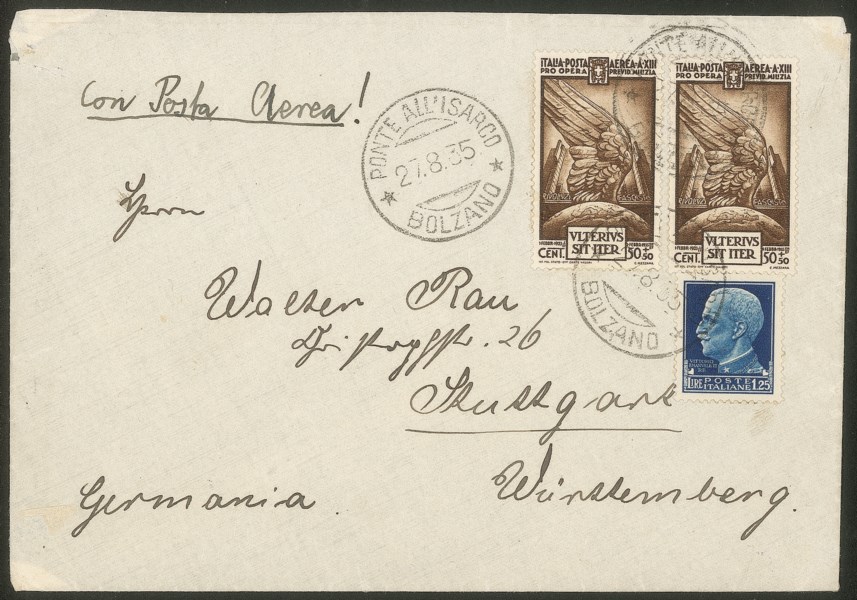 Con Posta Aerea!
PONTE ALL'ISARCO
27.8.35
BOLZANO
ITALIA·POSTA AEREA·A·XIII
PRO OPERA PREVID.MILIZIA
FASCISTA
VLTERIVS
SIT ITER
CENT. 50+50
ITALIA·POSTA AEREA·A·XIII
PRO OPERA PREVID.MILIZIA
FASCISTA
VLTERIVS
SIT ITER
CENT. 50+50
BOLZANO
Herrn
Walter Rau
26
Stuttgart
LIRE POSTE ITALIANE 1.25
Germania.
Württemberg.